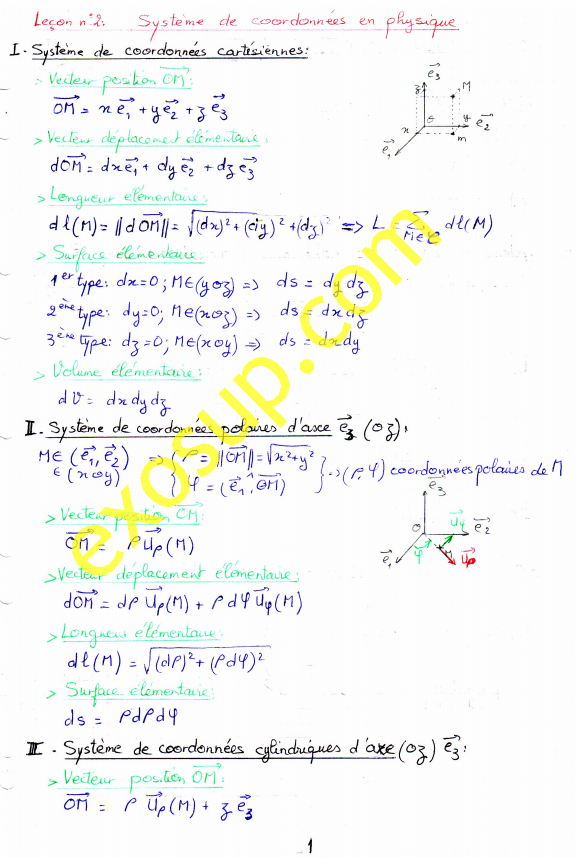 Leçon n°2: Système de coordonnées en physique
I - Système de coordonnées cartésiennes:
> Vecteur position OM:
OM = x e1 + y e2 + z e3
> Vecteur déplacement élémentaire:
dOM = dx e1 + dy e2 + dz e3
> Longueur élémentaire:
dl(M) = ||dOM|| = √(dx)² + (dy)² + (dz)² => L = Σ M∈C dl(M)
> Surface élémentaire:
1er type: dx=0; M∈(yoz) => ds = dy dz
2ème type: dy=0; M∈(xoz) => ds = dx dz
3ème type: dz=0; M∈(xoy) => ds = dx dy
> Volume élémentaire:
dV = dx dy dz
e3
z
M
o
y
e2
x
m
e1
II - Système de coordonnées polaires d'axe e3 (Oz):
M∈(e1, e2) => { ρ = ||OM|| = √x²+y² } => (ρ, φ) coordonnées polaires de M
∈(xoy) { φ = (e1, OM)
> Vecteur position OM:
OM = ρ Uρ(M)
> Vecteur déplacement élémentaire:
dOM = dρ Uρ(M) + ρ dφ Uφ(M)
> Longueur élémentaire:
dl(M) = √(dρ)² + (ρdφ)²
> Surface élémentaire:
ds = ρdρdφ
e3
O
Uφ
e2
e1
φ
M
Uρ
III - Système de coordonnées cylindriques d'axe (Oz) e3:
> Vecteur position OM:
OM = ρ Uρ(M) + z e3
1
exosup.com